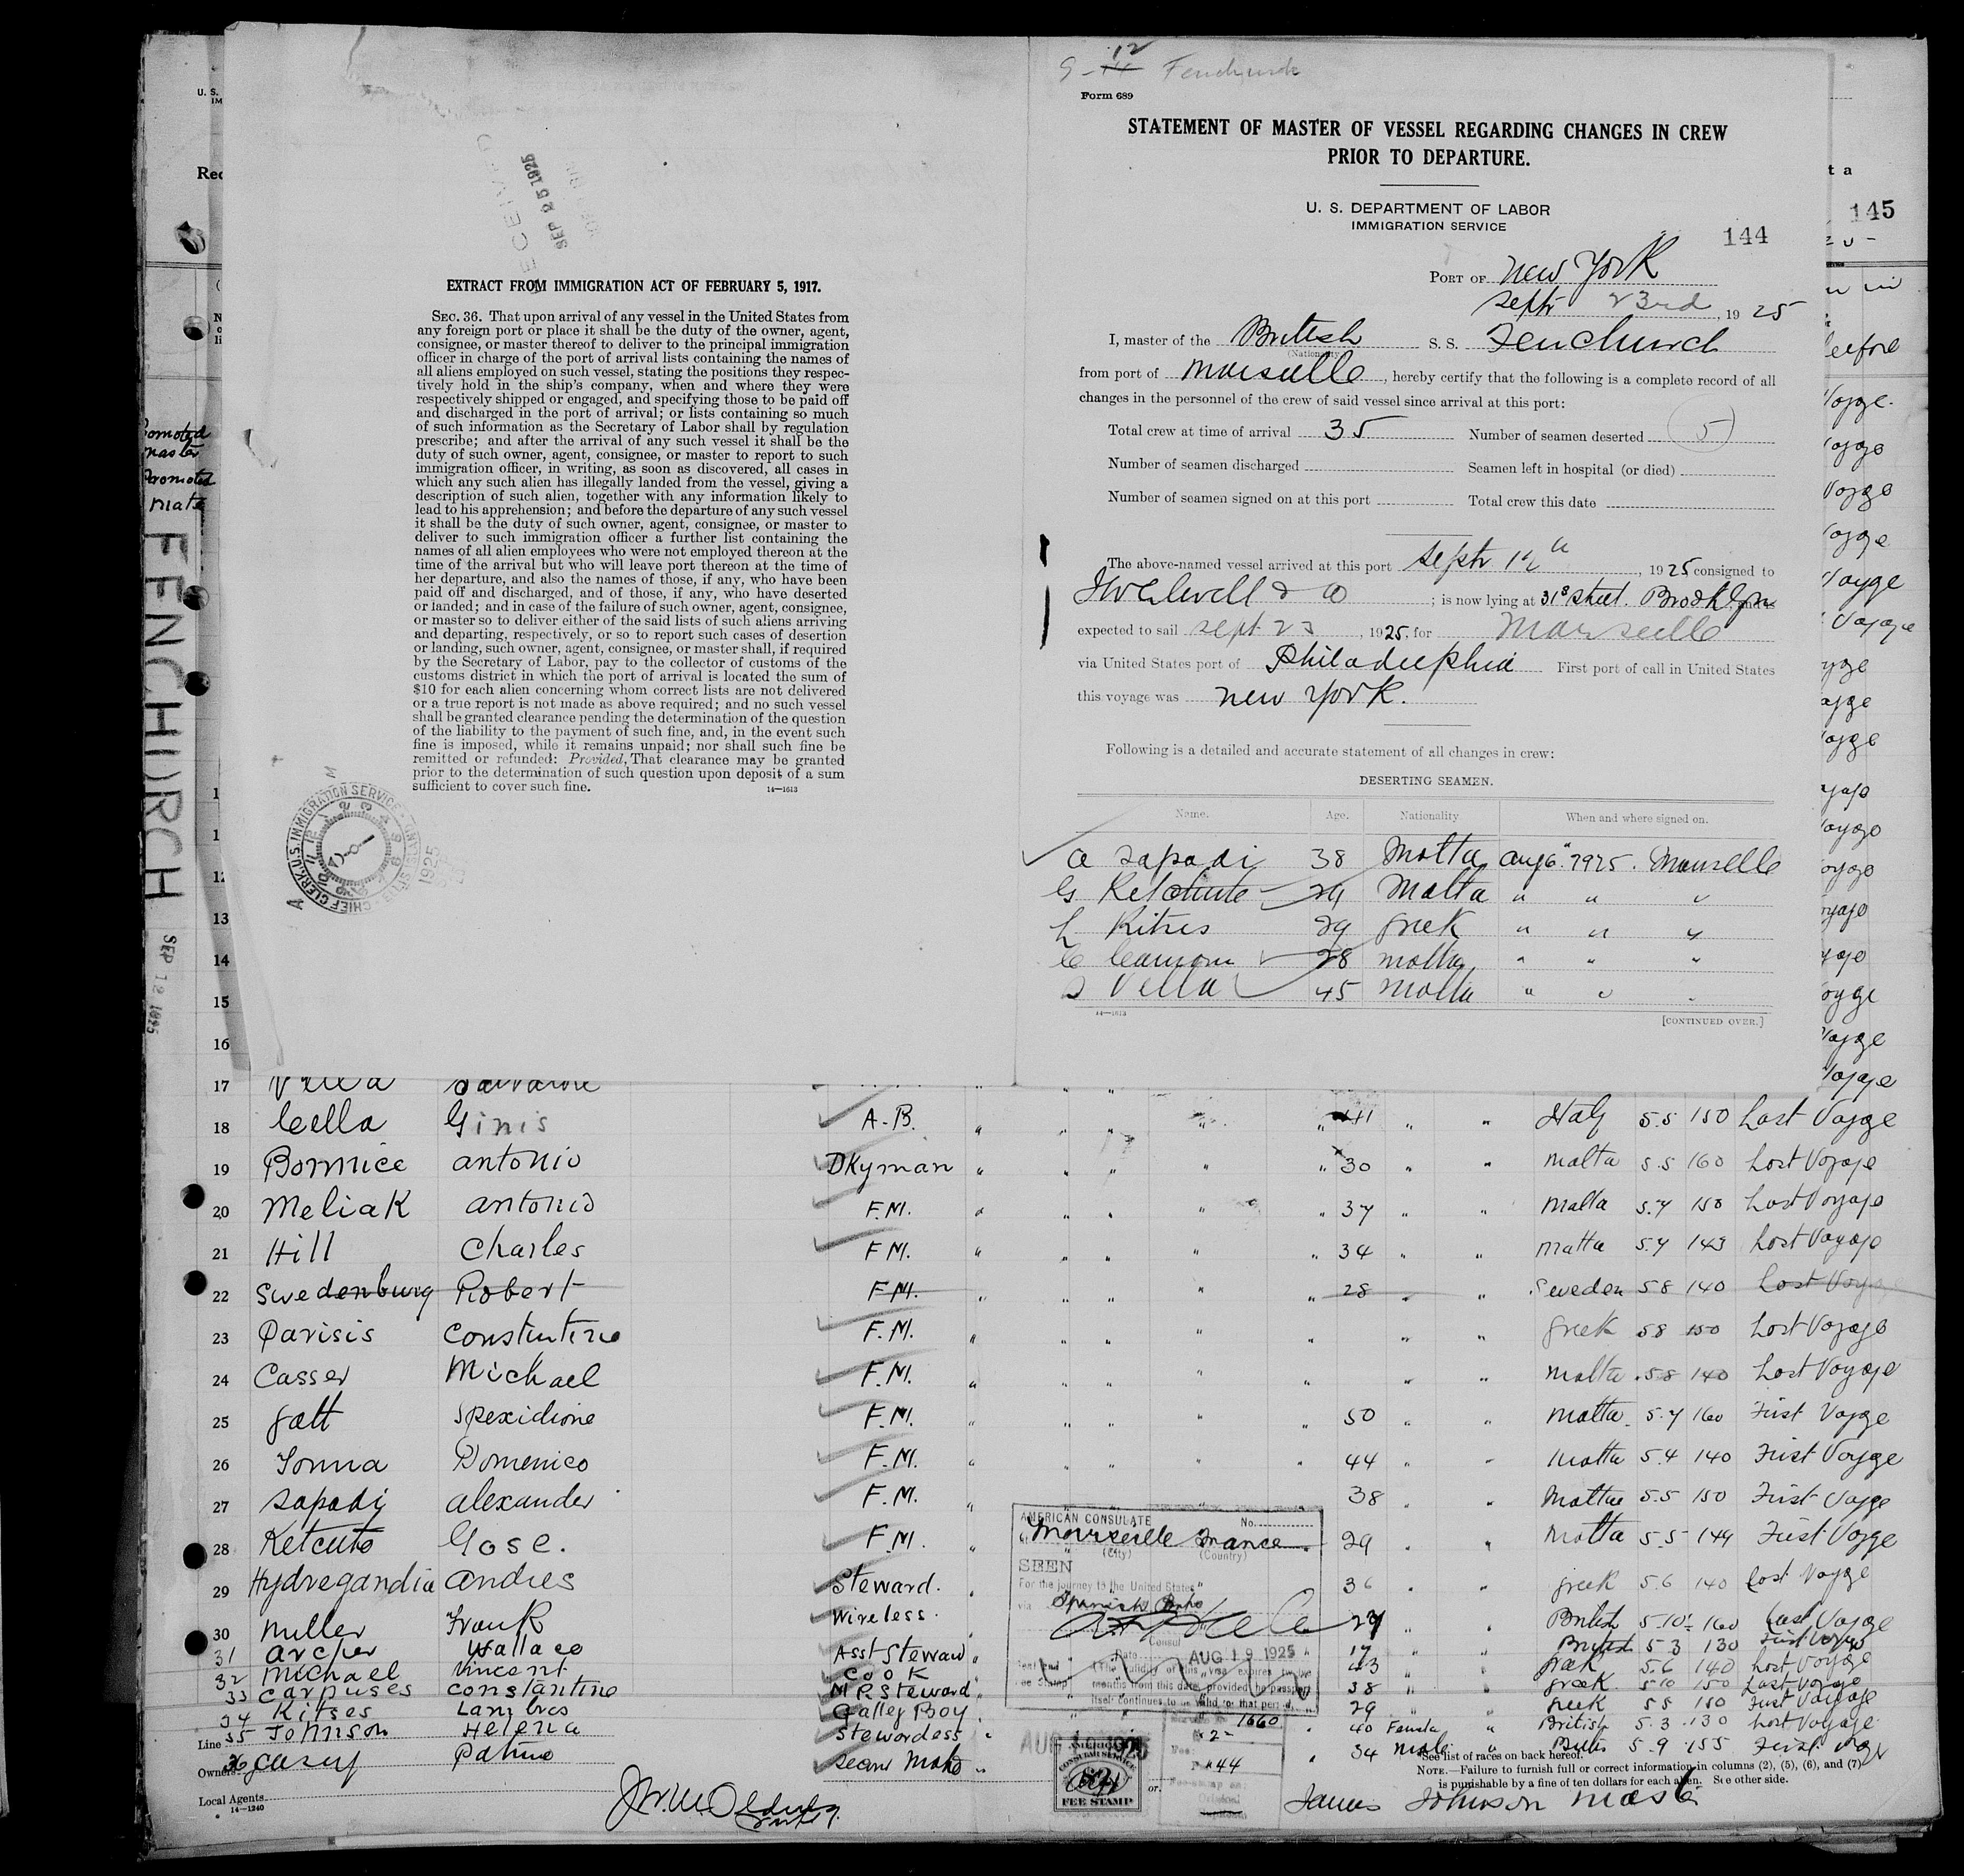 EXTRACT FROM IMMIGRATION ACT OF FEBRUARY 5, 1917.
SEC. 36. That upon arrival of any vessel in the United States from
any foreign port or place it shall be the duty of the owner, agent,
consignee, or master thereof to deliver to the principal immigration
officer in charge of the port of arrival lists containing the names of
all aliens employed on such vessel, stating the positions they respec-
tively hold in the ship's company, when and where they were
respectively shipped or engaged, and specifying those to be paid off
and discharged in the port of arrival; or lists containing so much
of such information as the Secretary of Labor shall by regulation
prescribe; and after the arrival of any such vessel it shall be the
duty of such owner, agent, consignee, or master to report to such
immigration officer, in writing, as soon as discovered, all cases in
which any such alien has illegally landed from the vessel, giving a
description of such alien, together with any information likely to
lead to his apprehension; and before the departure of any such vessel
it shall be the duty of such owner, agent, consignee, or master to
deliver to such immigration officer a further list containing the
names of all alien employees who were not employed thereon at the
time of the arrival but who will leave port thereon at the time of
her departure, and also the names of those, if any, who have been
paid off and discharged, and of those, if any, who have deserted
or landed; and in case of the failure of such owner, agent, consignee,
or master so to deliver either of the said lists of such aliens arriving
and departing, respectively, or so to report such cases of desertion
or landing, such owner, agent, consignee, or master shall, if required
by the Secretary of Labor, pay to the collector of customs of the
customs district in which the port of arrival is located the sum of
$10 for each alien concerning whom correct lists are not delivered
or a true report is not made as above required; and no such vessel
shall be granted clearance pending the determination of the question
of the liability to the payment of such fine, and, in the event such
fine is imposed, while it remains unpaid; nor shall such fine be
remitted or refunded: Provided, That clearance may be granted
prior to the determination of such question upon deposit of a sum
sufficient to cover such fine.
14—1613
SEP 25 1925
Promoted
master
Promoted
mate
FENCHURCH
SEP 12 1925
12
Fenchurch
Form 689
STATEMENT OF MASTER OF VESSEL REGARDING CHANGES IN CREW
PRIOR TO DEPARTURE.
U. S. DEPARTMENT OF LABOR
IMMIGRATION SERVICE
144
145
PORT OF New York
Septr 23rd, 1925
I, master of the British S. S. Fenchurch
(Nationality)
from port of Marseille, hereby certify that the following is a complete record of all
changes in the personnel of the crew of said vessel since arrival at this port:
Total crew at time of arrival 35 Number of seamen deserted 5
Number of seamen discharged Seamen left in hospital (or died)
Number of seamen signed on at this port Total crew this date
The above-named vessel arrived at this port Septr 12th, 1925 consigned to
; is now lying at 31st Street. Brooklyn
expected to sail Sept 23, 1925, for Marseille
via United States port of Philadelphia First port of call in United States
this voyage was New York.
Following is a detailed and accurate statement of all changes in crew:
DESERTING SEAMEN.
Name. Age. Nationality. When and where signed on.
A Sapadi 38 Malta Aug 6th 1925. Marseille
G Ketcute 29 Malta " " "
L Kitses 29 Greek " " "
28 Malta " " "
S Vella 45 Malta " " "
14—1613
[CONTINUED OVER.]
17 Vella Salvatore
18 Cella Ginis A.B. 41 Italy 5.5 150 Last Voyge
19 Bormice Antonio Dkyman 30 Malta 5.5 160 Last Voyage
20 Meliak Antonio F.M. 37 Malta 5.7 150 Last Voyage
21 Hill Charles F.M. 34 Malta 5.7 143 Last Voyage
22 Swedenburg Robert F.M. 28 Sweden 5 8 140 Last Voyage
23 Parisis Constintine F.M. Greek 5 8 150 Last Voyage
24 Casser Michael F.M. Malta 5.8 140 Last Voyage
25 Gatt Spexidione F.M. 50 Malta 5.7 160 First Voyge
26 Tonna Domenico F.M. 44 Malta 5.4 140 First Voyge
27 Sapadi Alexander F.M. 38 Malta 5.5 150 First Voyge
28 Ketcuto Gose. F.M. 29 Malta 5.5 149 First Voyge
29 Hydregandia Andres Steward. 36 Greek 5.6 140 Last Voyge
30 Miller Frank Wireless. 29 British 5.10 160 Last Voyge
31 Archer Wallace Asst Steward 17 British 5 3 130 First Voyge
32 Michael Vincent Cook 43 Greek 5.6 140 Last Voyage
33 Carpuses Constantine M R Steward 38 Greek 5 10 150 Last Voyage
34 Kitses Lambros Galley Boy 29 Greek 5 8 150 First Voyage
35 Johnson Helena Stewardess 40 Female British 5.3 130 Last Voyage
36 Casey Second Mate 34 Male 5.9 155 First
Line
Owners
Local Agents
14—1240
AMERICAN CONSULATE
No.
Marseille France
(City) (Country)
SEEN
For the journey to the United States
via Spanish Ports
Consul
Date AUG 19 1925
(The validity of this visa expires twelve
months from this date, provided the passport
itself continues to be valid for that period.
1660
44
AMERICAN
CONSULAR SERVICE
FEE STAMP
*See list of races on back hereof.
NOTE.—Failure to furnish full or correct information in columns (2), (5), (6), and (7)
is punishable by a fine of ten dollars for each alien. See other side.
James Johnson Master